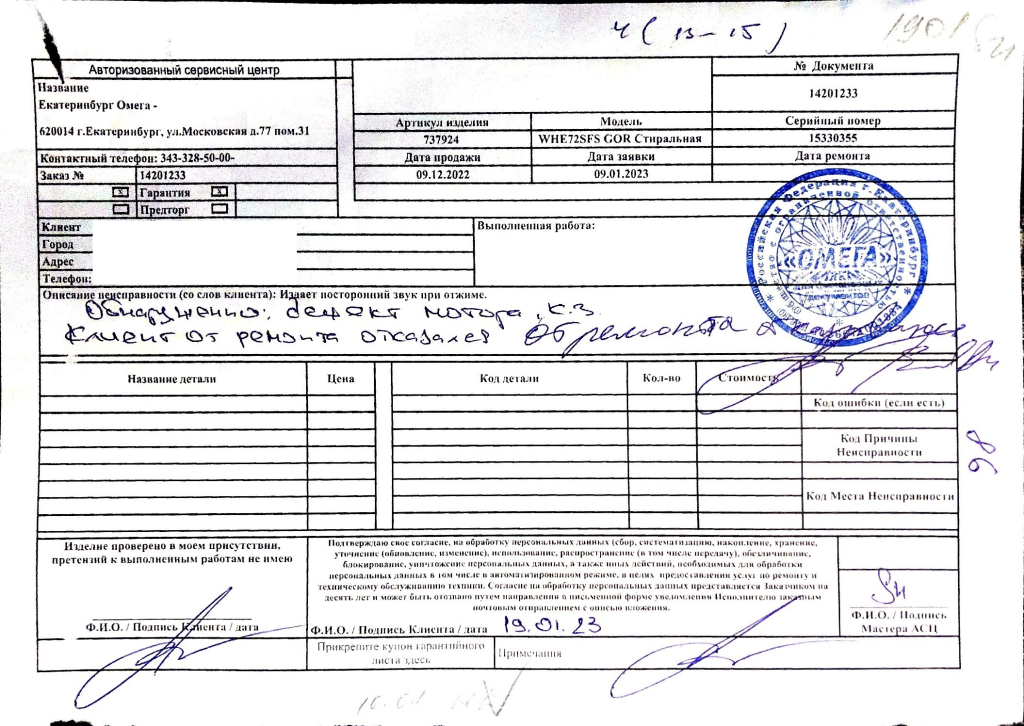 ч ( 13-15 )
Авторизованный сервисный центр
Название
Екатеринбург Омега -
620014 г.Екатеринбург, ул.Московская д.77 пом.31
Контактный телефон: 343-328-50-00-
Заказ № 14201233
x Гарантия x
Предторг
№ Документа
14201233
Артикул изделия Модель Серийный номер
737924 WHE72SFS GOR Стиральная 15330355
Дата продажи Дата заявки Дата ремонта
09.12.2022 09.01.2023
Клиент
Город
Адрес
Телефон:
Выполненная работа:
Российская Федерация г. Екатеринбург
ограниченной ответственностью
«ОМЕГА»
документов
Описание неисправности (со слов клиента): Издает посторонний звук при отжиме.
Обнаружено: дефект мотора, к.з.
Клиент от ремонта отказался От ремонта
Название детали Цена Код детали Кол-во Стоимость
Код ошибки (если есть)
Код Причины
Неисправности
Код Места Неисправности
98
Изделие проверено в моем присутствии,
претензий к выполненным работам не имею
Ф.И.О. / Подпись Клиента / дата
Подтверждаю свое согласие, на обработку персональных данных (сбор, систематизацию, накопление, хранение,
уточнение (обновление, изменение), использование, распространение (в том числе передачу), обезличивание,
блокирование, уничтожение персональных данных, а также иных действий, необходимых для обработки
персональных данных в том числе в автоматизированном режиме, в целях предоставления услуг по ремонту и
техническому обслуживанию техники. Согласие на обработку персональных данных представляется Заказчиком на
десять лет и может быть отозвано путем направления в письменной форме уведомления Исполнителю заказным
почтовым отправлением с описью вложения.
Ф.И.О. / Подпись Клиента / дата 19.01.23
Ф.И.О. / Подпись
Мастера АСЦ
Прикрепите купон гарантийного
листа здесь
Примечания